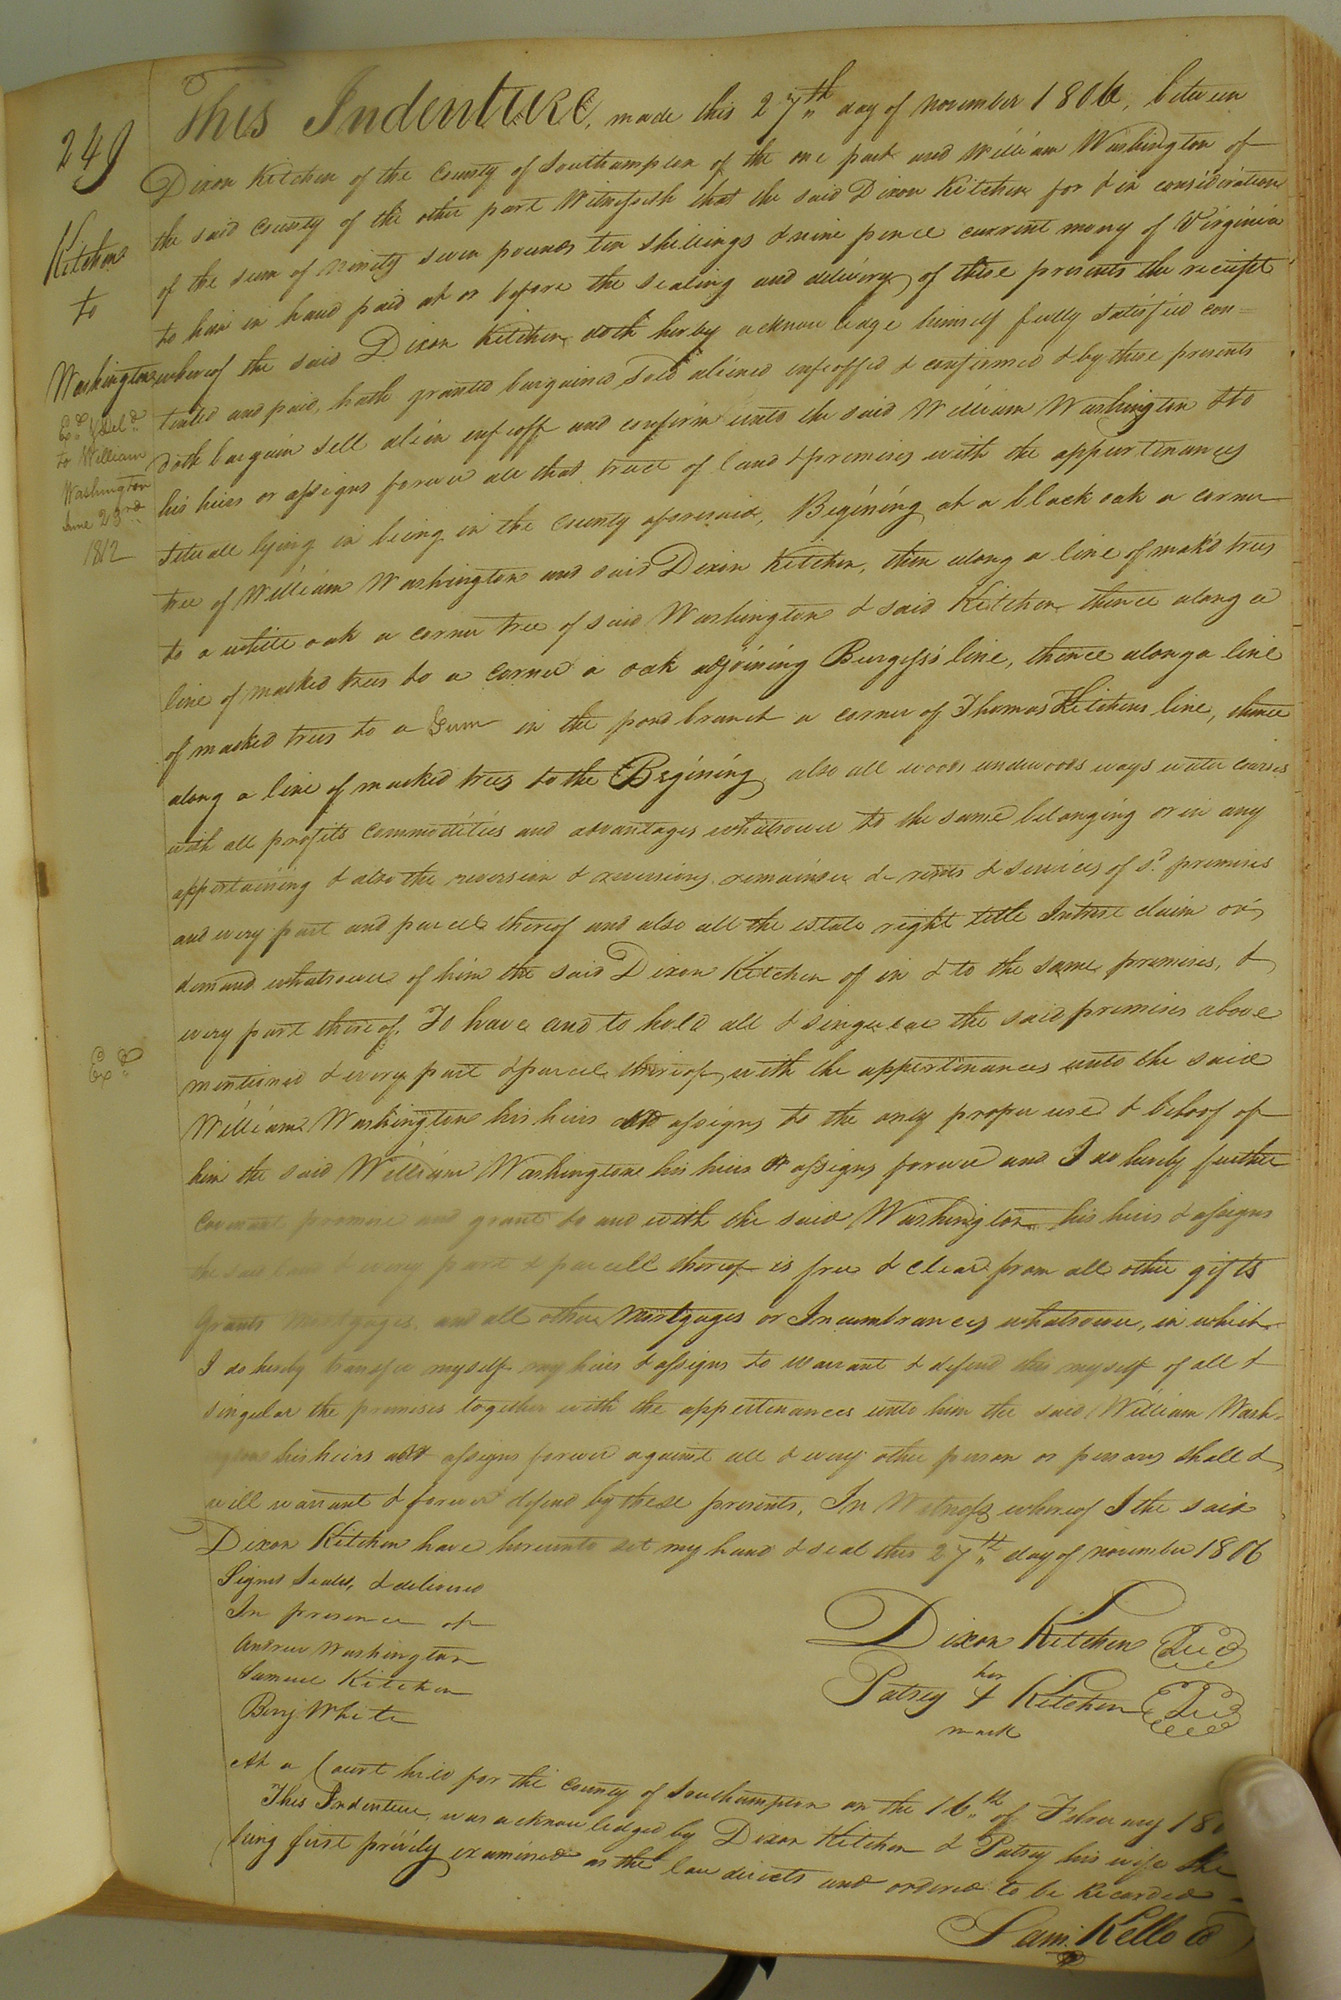 249
Kitchen
to
Washington
Exd & Deld
to William
Washington
June 23rd
1812
Exd
This Indenture, made this 27th day of november 1806, between
Dixon Kitchen of the County of Southampton of the one part and William Washington of
the said County of the other part Witnesseth that the said Dixon Kitchen for & in consideration
of the sum of Ninety seven pounds ten shillings & nine pence current mony of Virginia
to him in hand paid at or before the sealing and delivery of these presents the receipt
whereof the said Dixon Kitchen doth herby acknowledge himself fully satisfied con=
tented and paid, hath granted bargained sold aliened infeoffed & confirmed & by these presents
doth bargain sell alien infeoff and confirm unto the said William Washington & to
his heirs or assigns forever all that tract of land & premises with the appurtenances
situate lying in being in the County aforesaid, Begining at a black oak a corner
tree of William Washington and said Dixon Kitchen, then along a line of maked trees
to a white oak a corner tree of said Washington & said Kitchen thence along a
line of marked trees to a corner a oak adjoining Burgess's line, thence along a line
of marked trees to a Gum in the pond branch a corner of Thomas Kitchens line, thence
along a line of marked trees to the Begining also all woods underwoods ways water courses
with all profits commodities and advantages whatsoever to the same belonging or in any
appertaining & also the reversion & reversions remainder & rents & services of sd. premises
and every part and parcel thereof and also all the estate right title Intrest claim or
demand whatsoever of him the said Dixon Kitchen of in & to the same premises, &
every part thereof, To have and to hold all & singular the said premises above
mentioned & every part & parcel thereof with the appertinances unto the said
William Washington his heirs and assigns to the only proper use & behoof of
him the said William Washington his heirs or assigns forever and I do hereby further
Covenant promise and grant to and with the said Washington his heirs & assigns
the said land & every part & parcell thereof is free & clear from all other gifts
Grants Mortgages and all other Mortgages or Incumbrances whatsoever, in which
I do hereby transfer myself my heirs & assigns to warrant & defend this myself of all &
singular the premises together with the appertinances unto him the said William Wash=
ington his heirs and assigns forever against all & every other person or persons shall &
will warrant & forever defend by these presents, In Witness whereof I the said
Dixon Kitchen have hereunto set my hand & seal this 27th day of november 1806
Signed Sealed, & delivered
In presence of
Andrew Washington
Samuel Kitchen
Benj. White
Dixon Kitchen Seal
her
Patsey + Kitchen Seal
mark
At a Court held for the County of Southampton on the 16th of February 180
This Indenture was acknowledged by Dixon Kitchen & Patsey his wife she
being first privily examined as the law directs and ordered to be Recorded
Sam. Kello Co